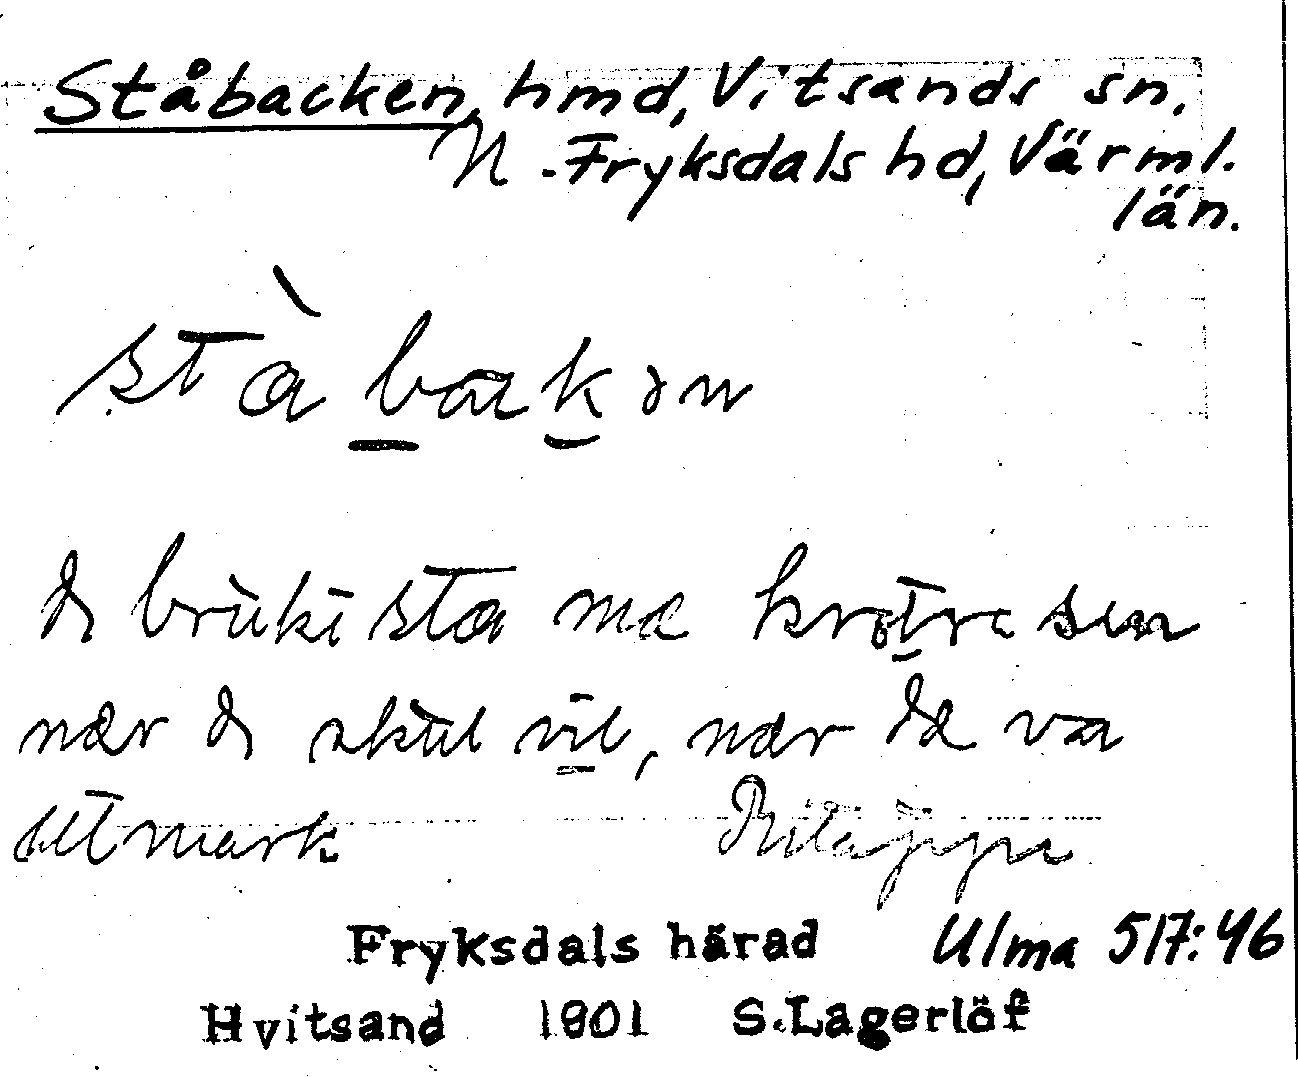 Ståbacken, hmd, Vitsands sn,
N. Fryksdals hd, Värml.
län.
stàbakən
bruki sta mæ
nær skul vil, nær dæ va
utmark Ritäppa
Fryksdals härad Ulma 517:46
Hvitsand 1901 S.Lagerlöf